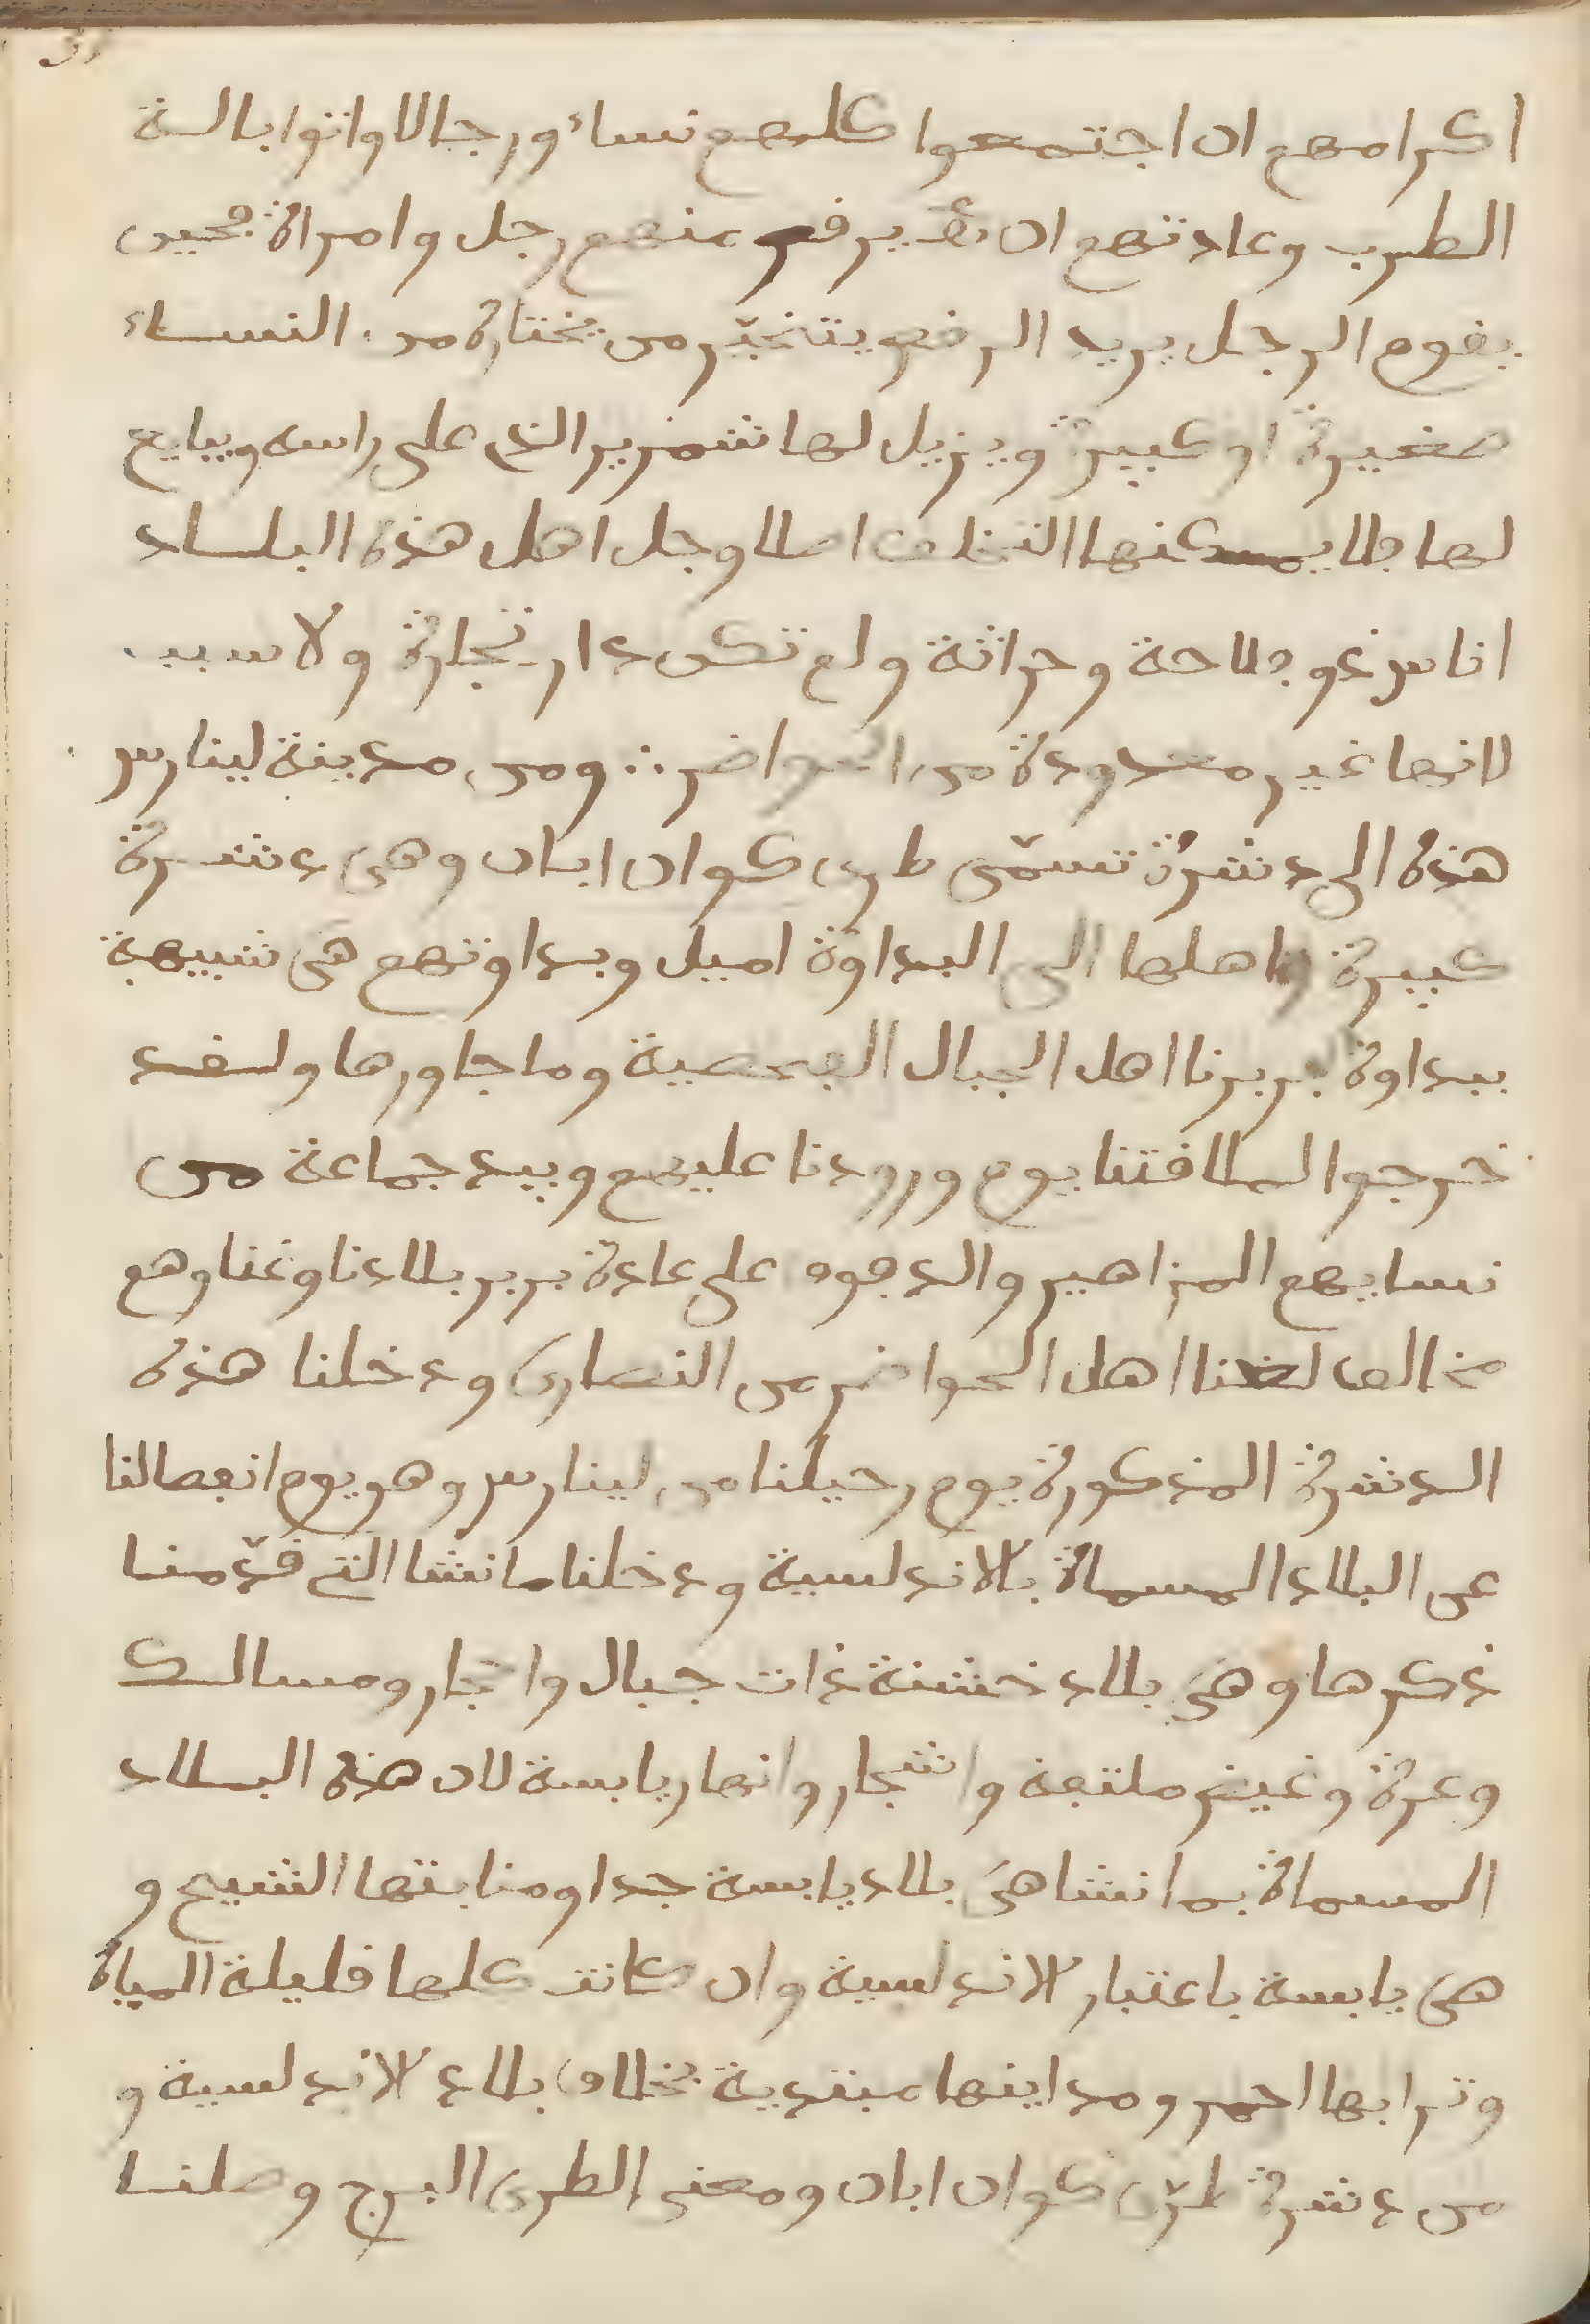 اكرامهم ان اجتمعوا كلهم نساء ورجالا واتوا بالة
الطرب وعادتهم ان يرقص منهم رجل وامراة فحين
يقوم الرجل يريد الرقص يتخير من يختاره من النساء
صغيرة او كبيرة ويزيل لها شمرير الذي على راسه ويبايع
لها فلا يمكنها التخلف اصلا وجل اهل هذه البلاد
اناس ذو فلاحة وحراثة ولم تكن دار تجارة ولا سبب
لانها غير معدودة من الحواضر ∴ ومن مدينة لينارس
هذه الى دشرة تسمى طرى كوان ابان وهي دشرة
كبيرة واهلها الى البداوة اميل وبداوتهم هي شبيهة
ببداوة بربرنا اهل الجبال الفحصية وما جاورها ولقد
خرجوا لملاقتنا يوم ورودنا عليهم وبيد جماعة من
نسايهم المزاهير والدفوف على عادة بربر بلادنا وغناوهم
مخالف لغنا اهل الحواضر من النصارى ودخلنا هذه
الدشرة المذكورة يوم رحيلنا من لينارس وهو يوم انفصالنا
عن البلاد المسماة بالاندلسية ودخلنا مانشا التي قدمنا
ذكرها وهي بلاد خشنة ذات جبال واحجار ومسالك
وعرة وغيض ملتفة واشجار وانهار يابسة لان هذه البلاد
المسماة بمانشا هي بلاد يابسة جدا ومنابتها الشيح و
هي يابسة باعتبار الاندلسية وان كانت كلها قليلة المياه
وترابها احمر ومداينها مبتدية بخلاف بلاد الاندلسية و
من دشرة طرى كوان ابان ومعنى الطرى البرج وصلنا